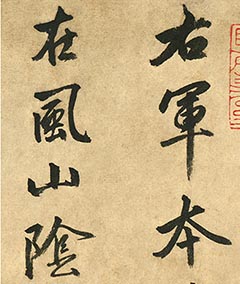 右軍本
在風山陰